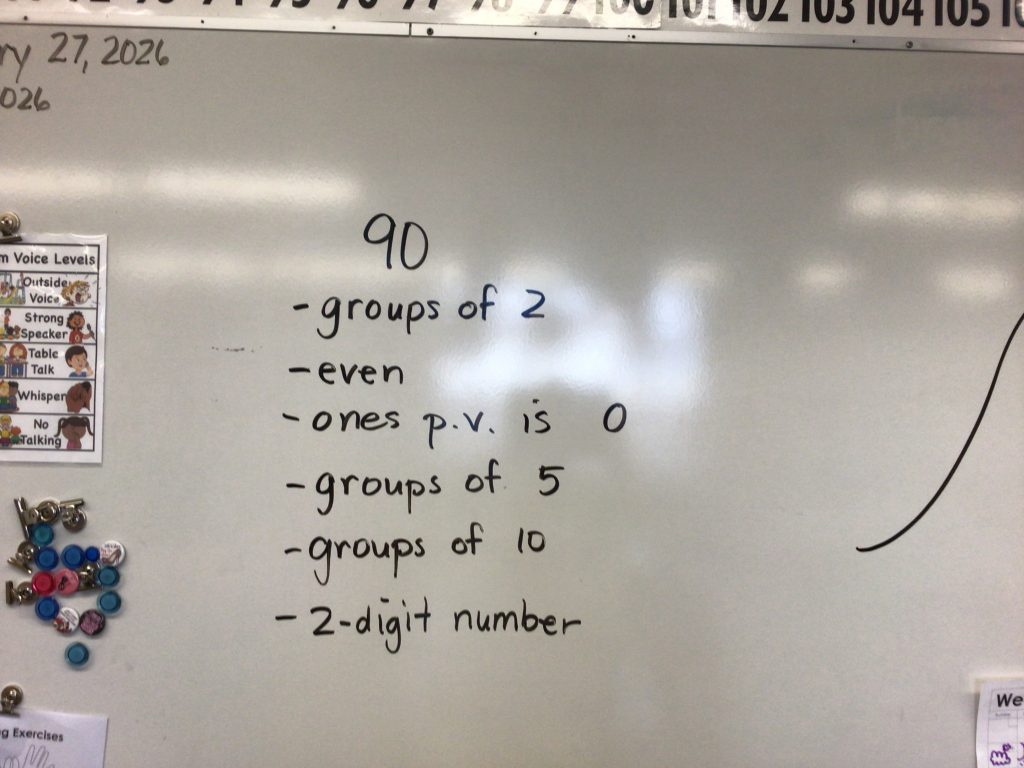 100 101 102 103 104 105
27, 2026
026
90
- groups of 2
- even
- ones p.v. is 0
- groups of 5
- groups of 10
- 2-digit number
Voice Levels
Outside
Voice
Strong
Speaker
Table
Talk
Whisper
No
Talking
Exercises
We